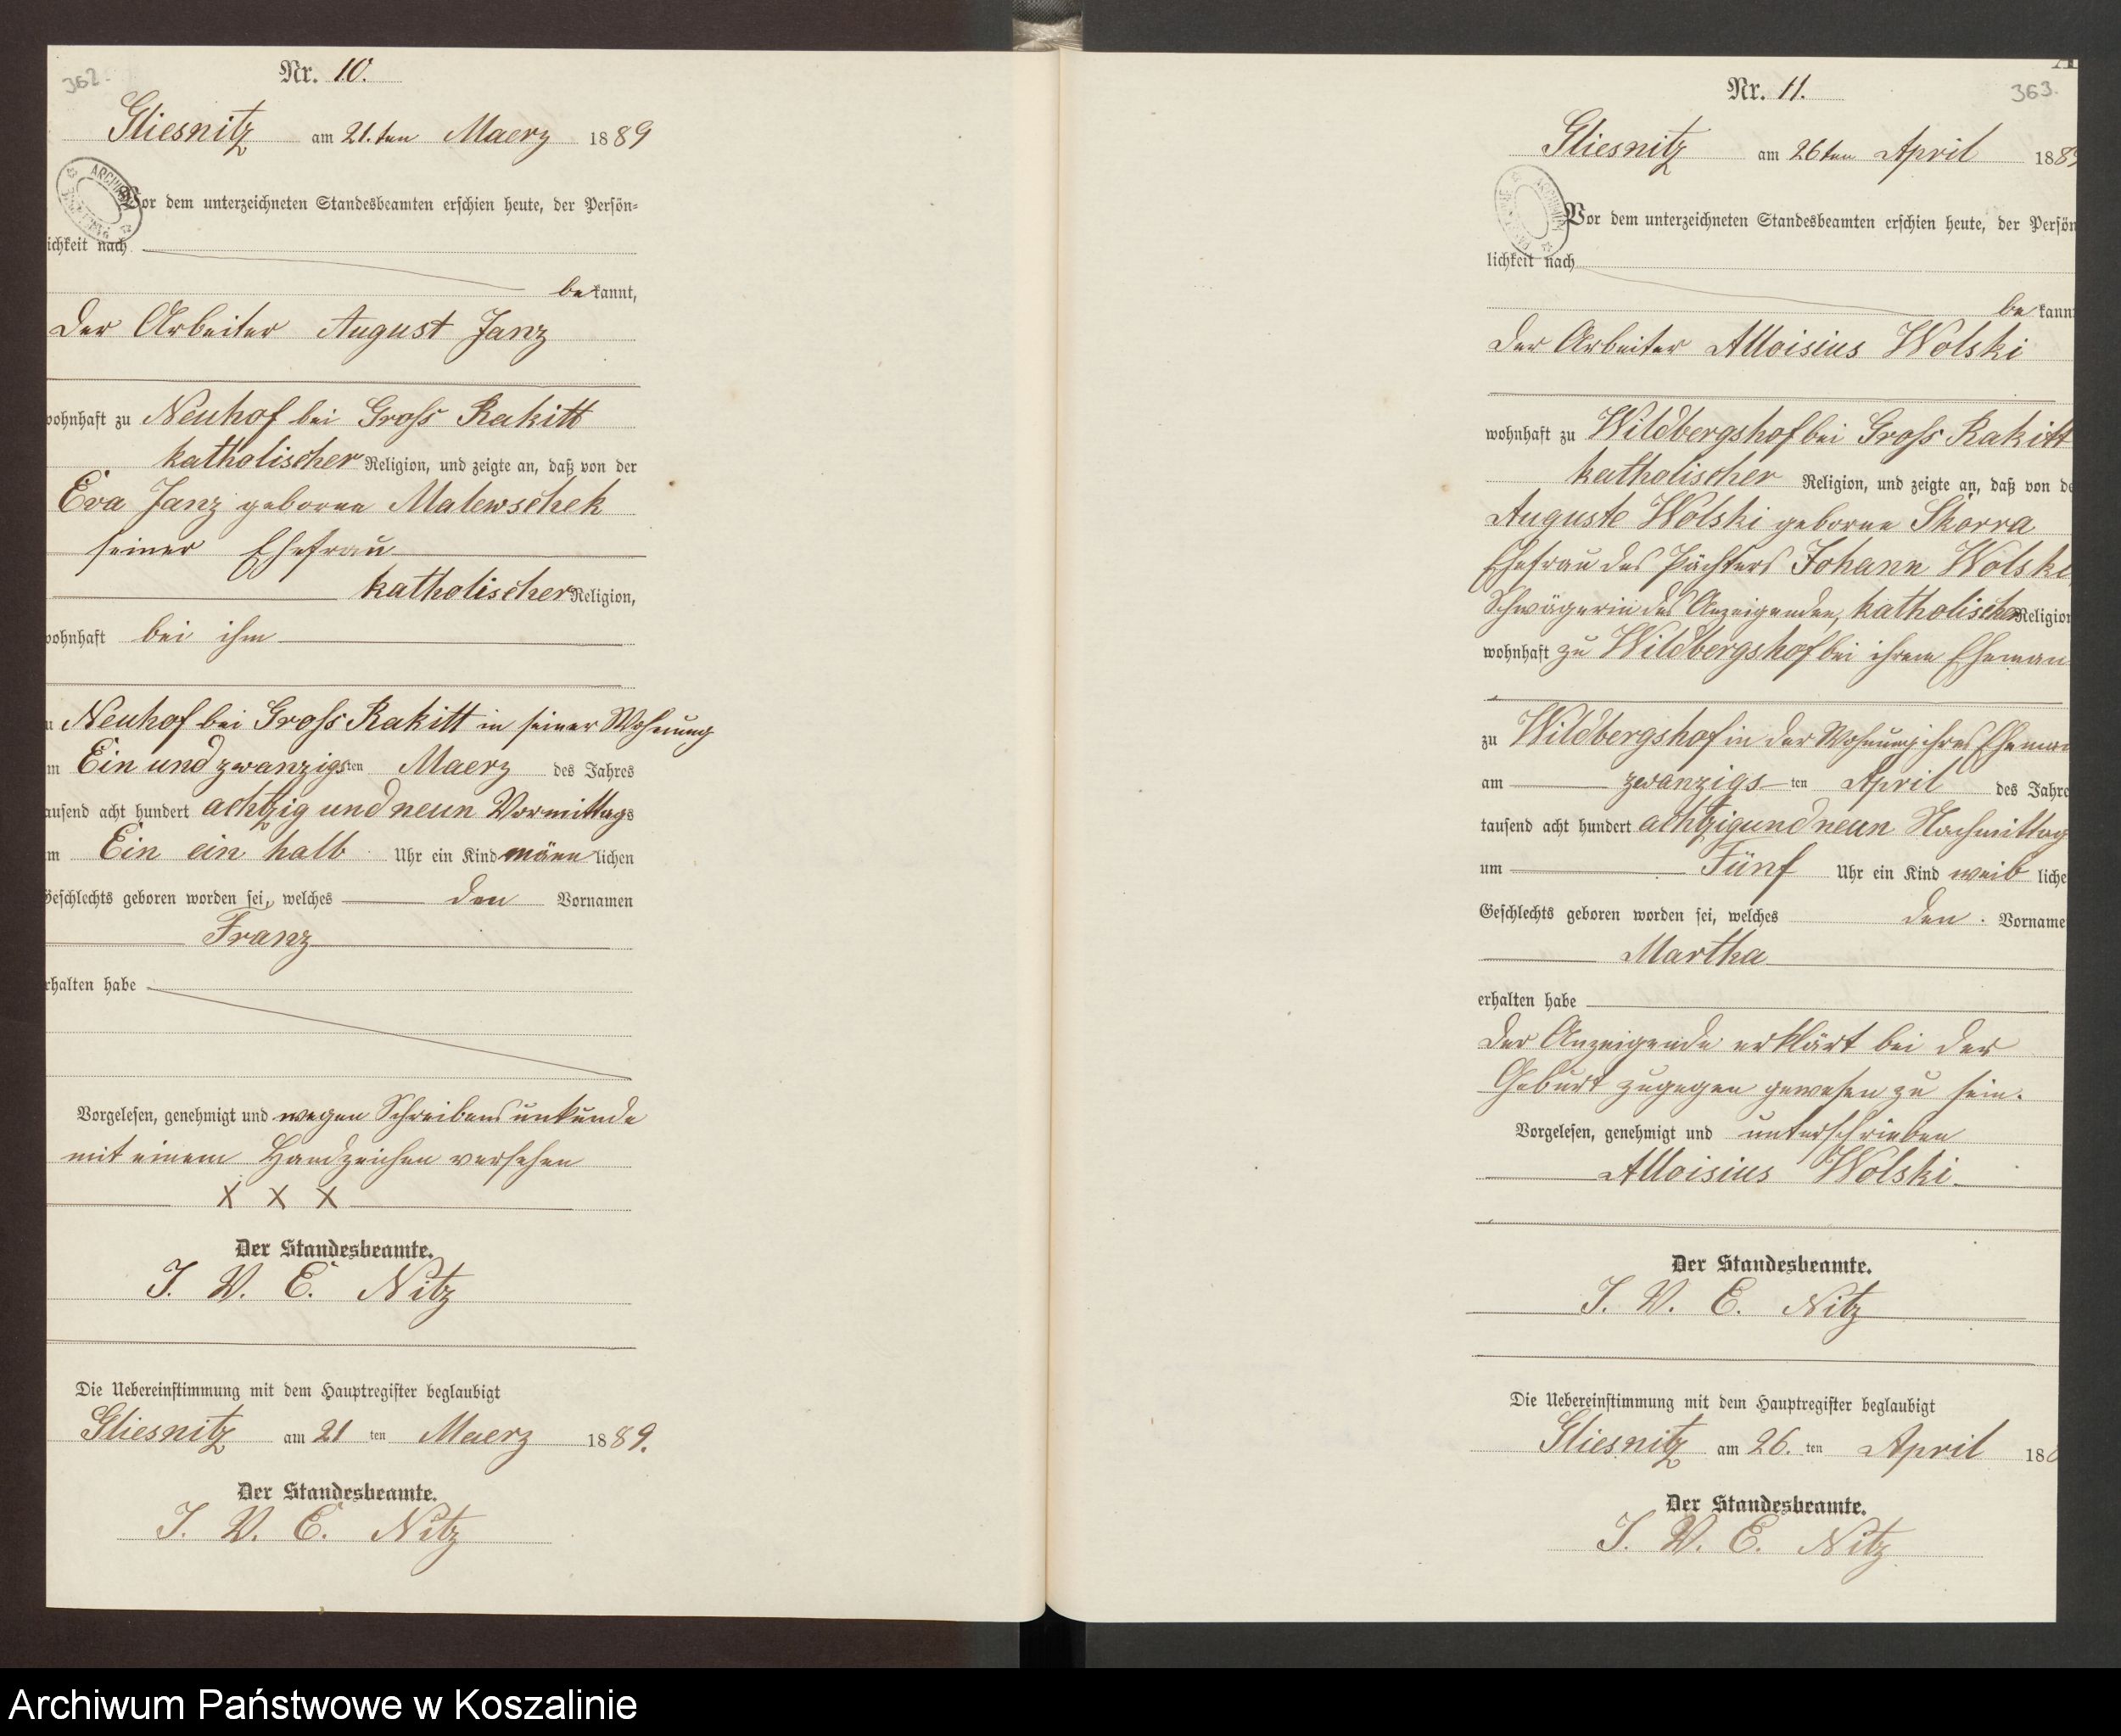 362.
Nr. 10.
Gliesnitz am 21.ten Maerz 1889
Vor dem unterzeichneten Standesbeamten erschien heute, der Persön-
ichkeit nach
bekannt,
der Arbeiter August Janz
wohnhaft zu Neuhof bei Gross Rakitt
katholischer Religion, und zeigte an, daß von der
Eva Janz geborne Malewschek
seiner Ehefrau
katholischer Religion,
wohnhaft bei ihm
u Neuhof bei Gross Rakitt in seiner Wohnung
m Ein und zwanzigsten Maerz des Jahres
ausend acht hundert achtzig und neun Vormittags
m Ein ein halb Uhr ein Kind männlichen
Geschlechts geboren worden sei, welches den Vornamen
Franz
rhalten habe
Vorgelesen, genehmigt und wegen Schreibensunkunde
mit einem Handzeichen versehen
X X X
Der Standesbeamte.
I. V. E. Nitz
Die Uebereinstimmung mit dem Hauptregister beglaubigt
Gliesnitz am 21 ten Maerz 1889.
Der Standesbeamte.
I. V. E. Nitz
Nr. 11.
363.
Gliesnitz am 26ten April 1889
Vor dem unterzeichneten Standesbeamten erschien heute, der Persön
lichkeit nach
bekannt
der Arbeiter Alloisius Wolski
wohnhaft zu Wildbergshof bei Gross Rakitt
katholischer Religion, und zeigte an, daß von de
Auguste Wolski geborne Skorra
Ehefrau des Pächters Johann Wolski
Schwägerin des Anzeigenden, katholischer Religion
wohnhaft zu Wildbergshof bei ihrem Eheman
zu Wildbergshof in der Wohnung ihres Eheman
am zwanzigsten April des Jahre
tausend acht hundert achtzig und neun Nachmittag
um Fünf Uhr ein Kind weibliche
Geschlechts geboren worden sei, welches den Vorname
Martha
erhalten habe
Der Anzeigende erklärt bei der
Geburt zugegen gewesen zu sein.
Vorgelesen, genehmigt und unterschrieben
Alloisius Wolski
Der Standesbeamte.
I. V. E. Nitz
Die Uebereinstimmung mit dem Hauptregister beglaubigt
Gliesnitz am 26. ten April 188
Der Standesbeamte.
I. V. E. Nitz
Archiwum Państwowe w Koszalinie